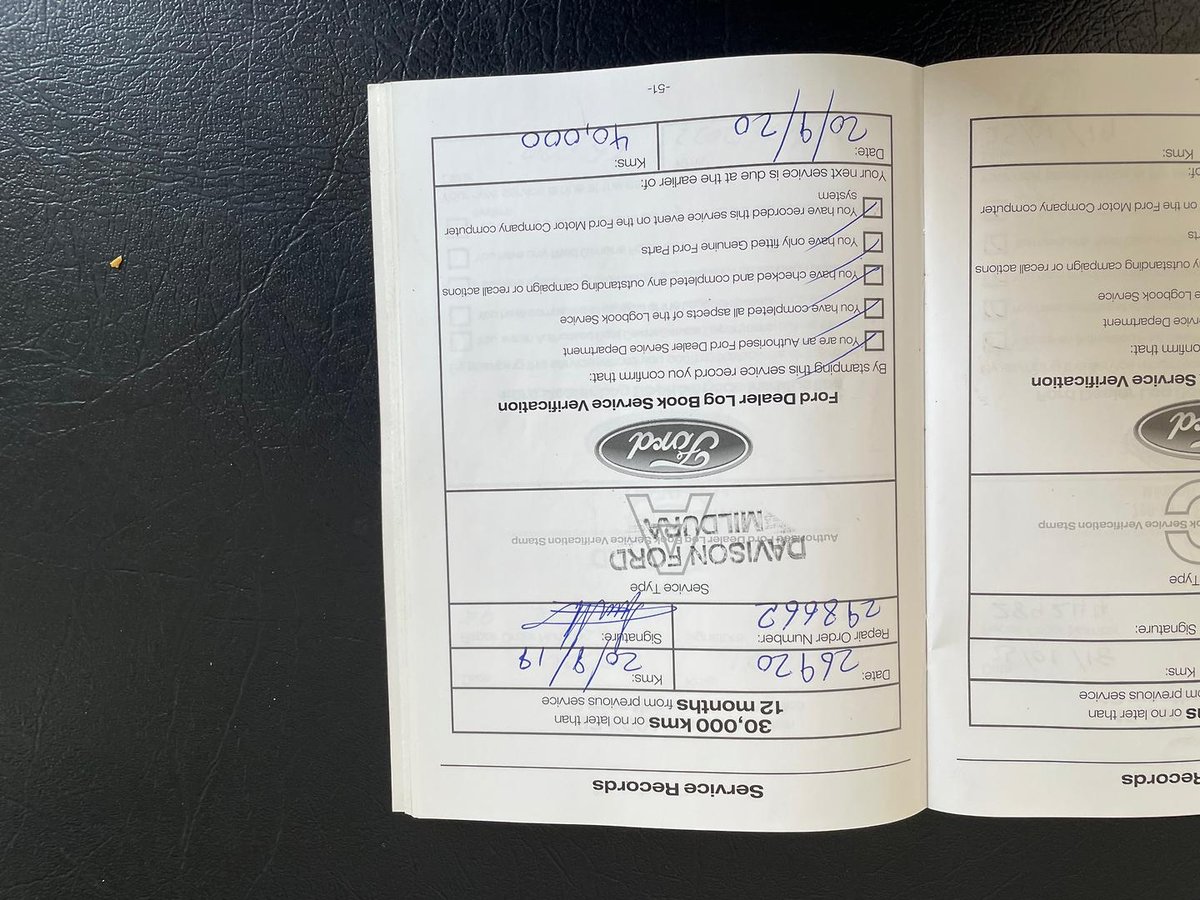 Records
ns or no later than
om previous service
Kms:
Signature:
Type
k Service Verification Stamp
Service Verification
onfirm that:
Service Department
e Logbook Service
y outstanding campaign or recall actions
ts
on the Ford Motor Company computer
of:
Kms:
Service Records
30,000 kms or no later than
12 months from previous service
Date: 26920 Kms: 20/9/19
Repair Order Number: 298662 Signature:
Service Type
DAVISON FORD
Authorised Ford Dealer Log Book Service Verification Stamp
MILDURA
Ford
Ford Dealer Log Book Service Verification
By stamping this service record you confirm that:
You are an Authorised Ford Dealer Service Department
You have completed all aspects of the Logbook Service
You have checked and completed any outstanding campaign or recall actions
You have only fitted Genuine Ford Parts
You have recorded this service event on the Ford Motor Company computer
system
Your next service is due at the earlier of:
Date: 20/9/20 Kms: 40,000
-51-